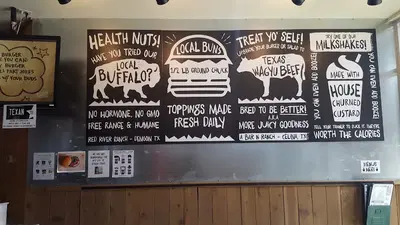 BURGER
YOU CAN
BURGER
HEALTH NUTS!
HAVE YOU TRIED OUR
LOCAL
BUFFALO?
NO HORMONE, NO GMO
FREE RANGE & HUMANE
RED RIVER RANCH - DENISON TX
LOCAL BUNS
1/2 LB GROUND CHUCK
TOPPINGS MADE
FRESH DAILY
TREAT YO' SELF!
UPGRADE YOUR BURGER OR SALAD TO
TEXAS
WAGYU BEEF
BRED TO BE BETTER!
A.K.A
MORE JUICY GOODNESS
A BAR N RANCH - CELINA, TX
TRY ONE OF OUR
MILKSHAKES!
YOU CAN EVEN ADD BOOZE!
MADE WITH
HOUSE
CHURNED
CUSTARD
YOU CAN EVEN ADD BOOZE!
WORTH THE CALORIES
TEXAN